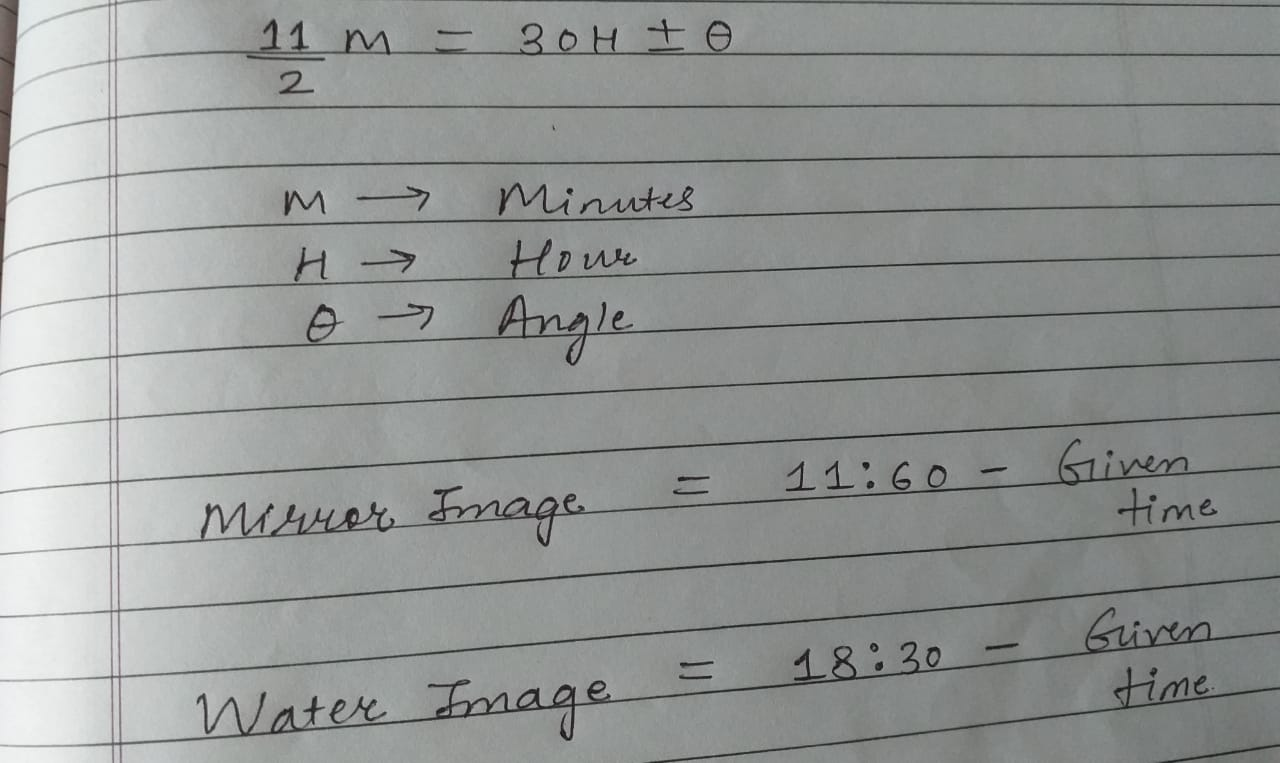 11/2 M = 30H ± θ
M → Minutes
H → Hour
θ → Angle
Mirror Image = 11:60 - Given time
Water Image = 18:30 - Given time